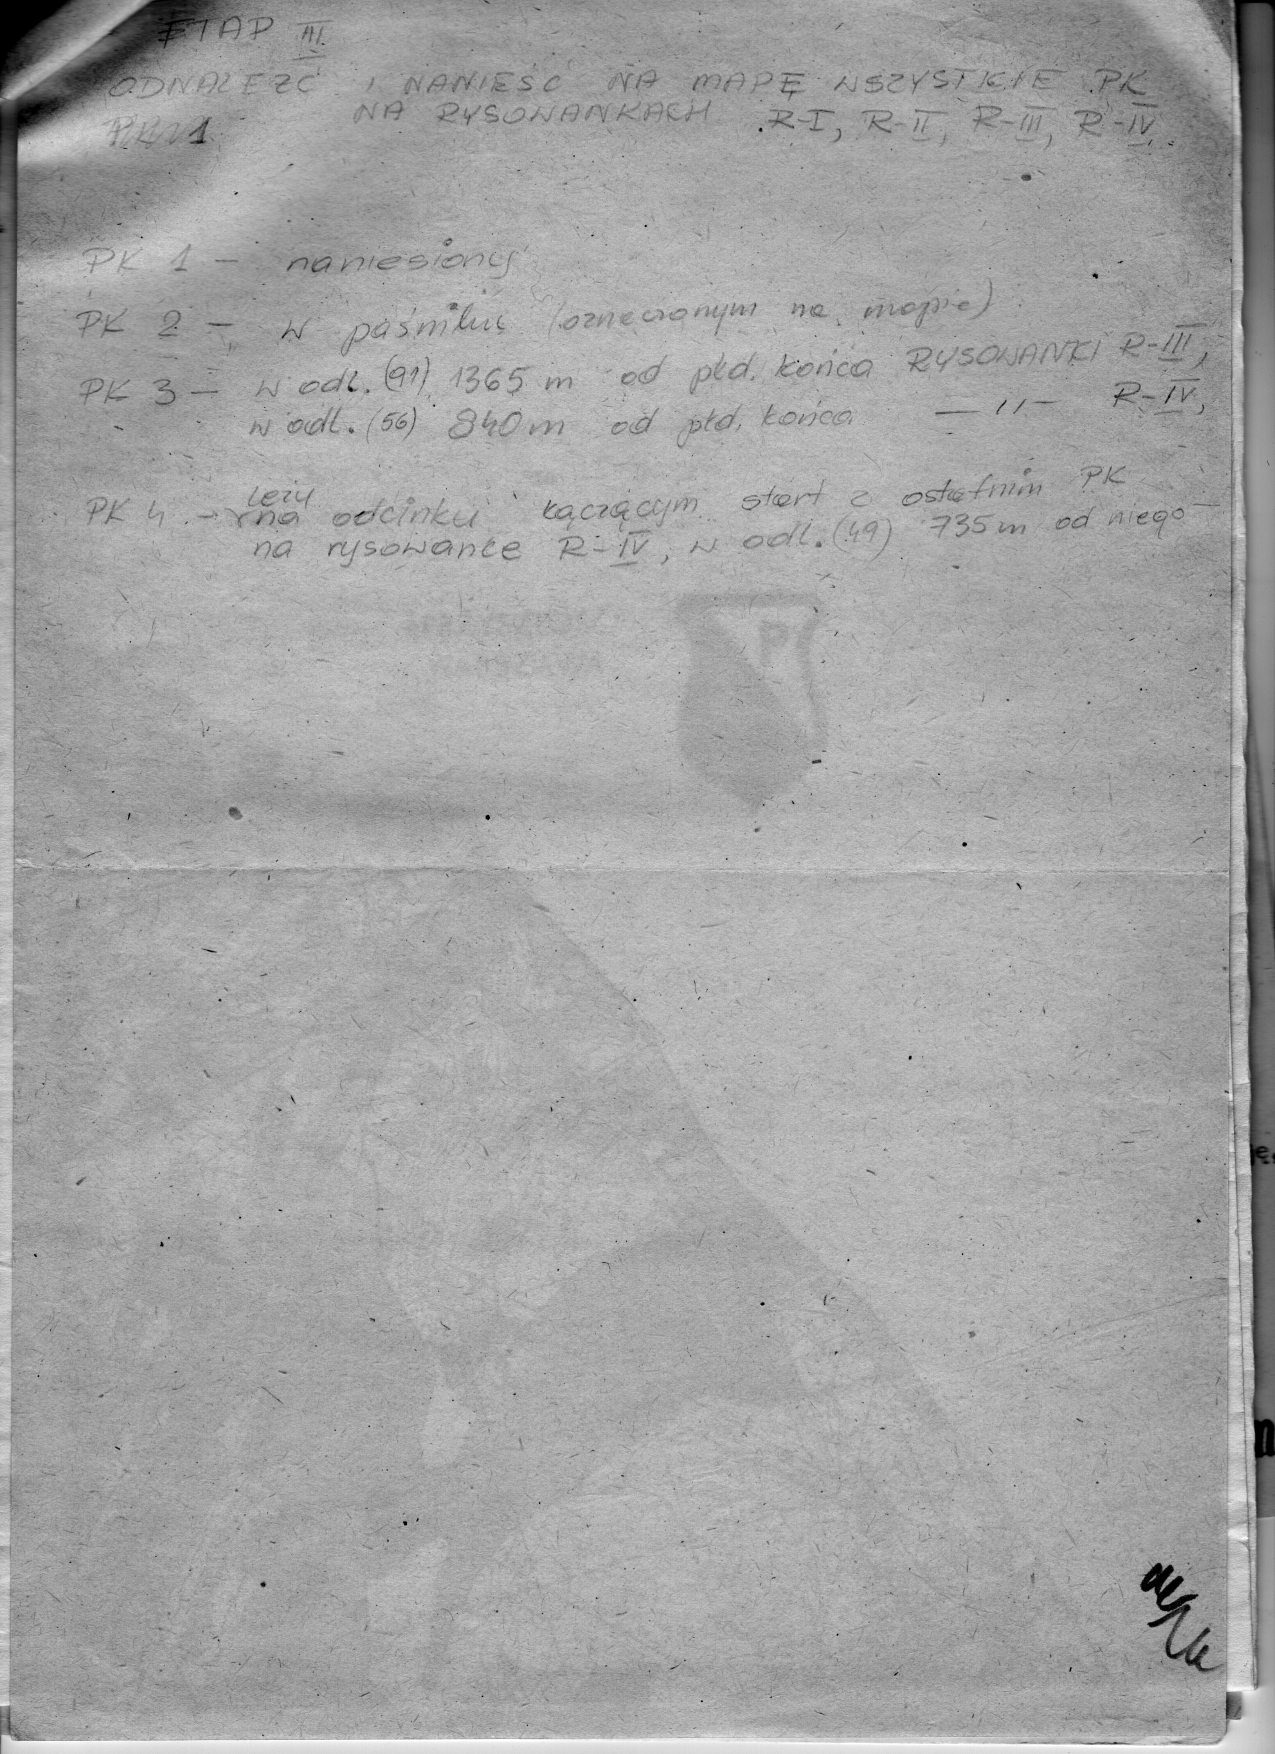 ETAP III
ODNALEŹĆ I NANIEŚĆ NA MAPĘ WSZYSTKIE PK
NA RYSOWANKACH R-I, R-II, R-III, R-IV.
PK 1
PK 1 – naniesiony
PK 2 – w paśniku (oznaczonym na mapie)
PK 3 – w odl. (91) 1365 m od płd. końca RYSOWANKI R-III,
w odl. (56) 840 m od płd. końca —〃— R-IV,
PK 4 – leży na odcinku łączącym start z ostatnim PK
na rysowance R-IV, w odl. (49) 735 m od niego
P